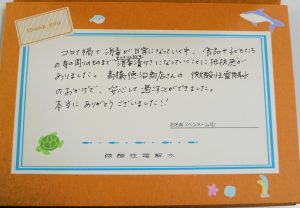 thank you
コロナ禍で消毒が日常になっていく中、食品や子どもたち
の身の周りのものまで消毒漬けになっていくことに抵抗感が
ありました。高橋徳江商店さんの微酸性電解水
のおかげで、安心して過ごすことができました。
本当にありがとうございました!!
お名前(ペンネーム可)
微酸性電解水